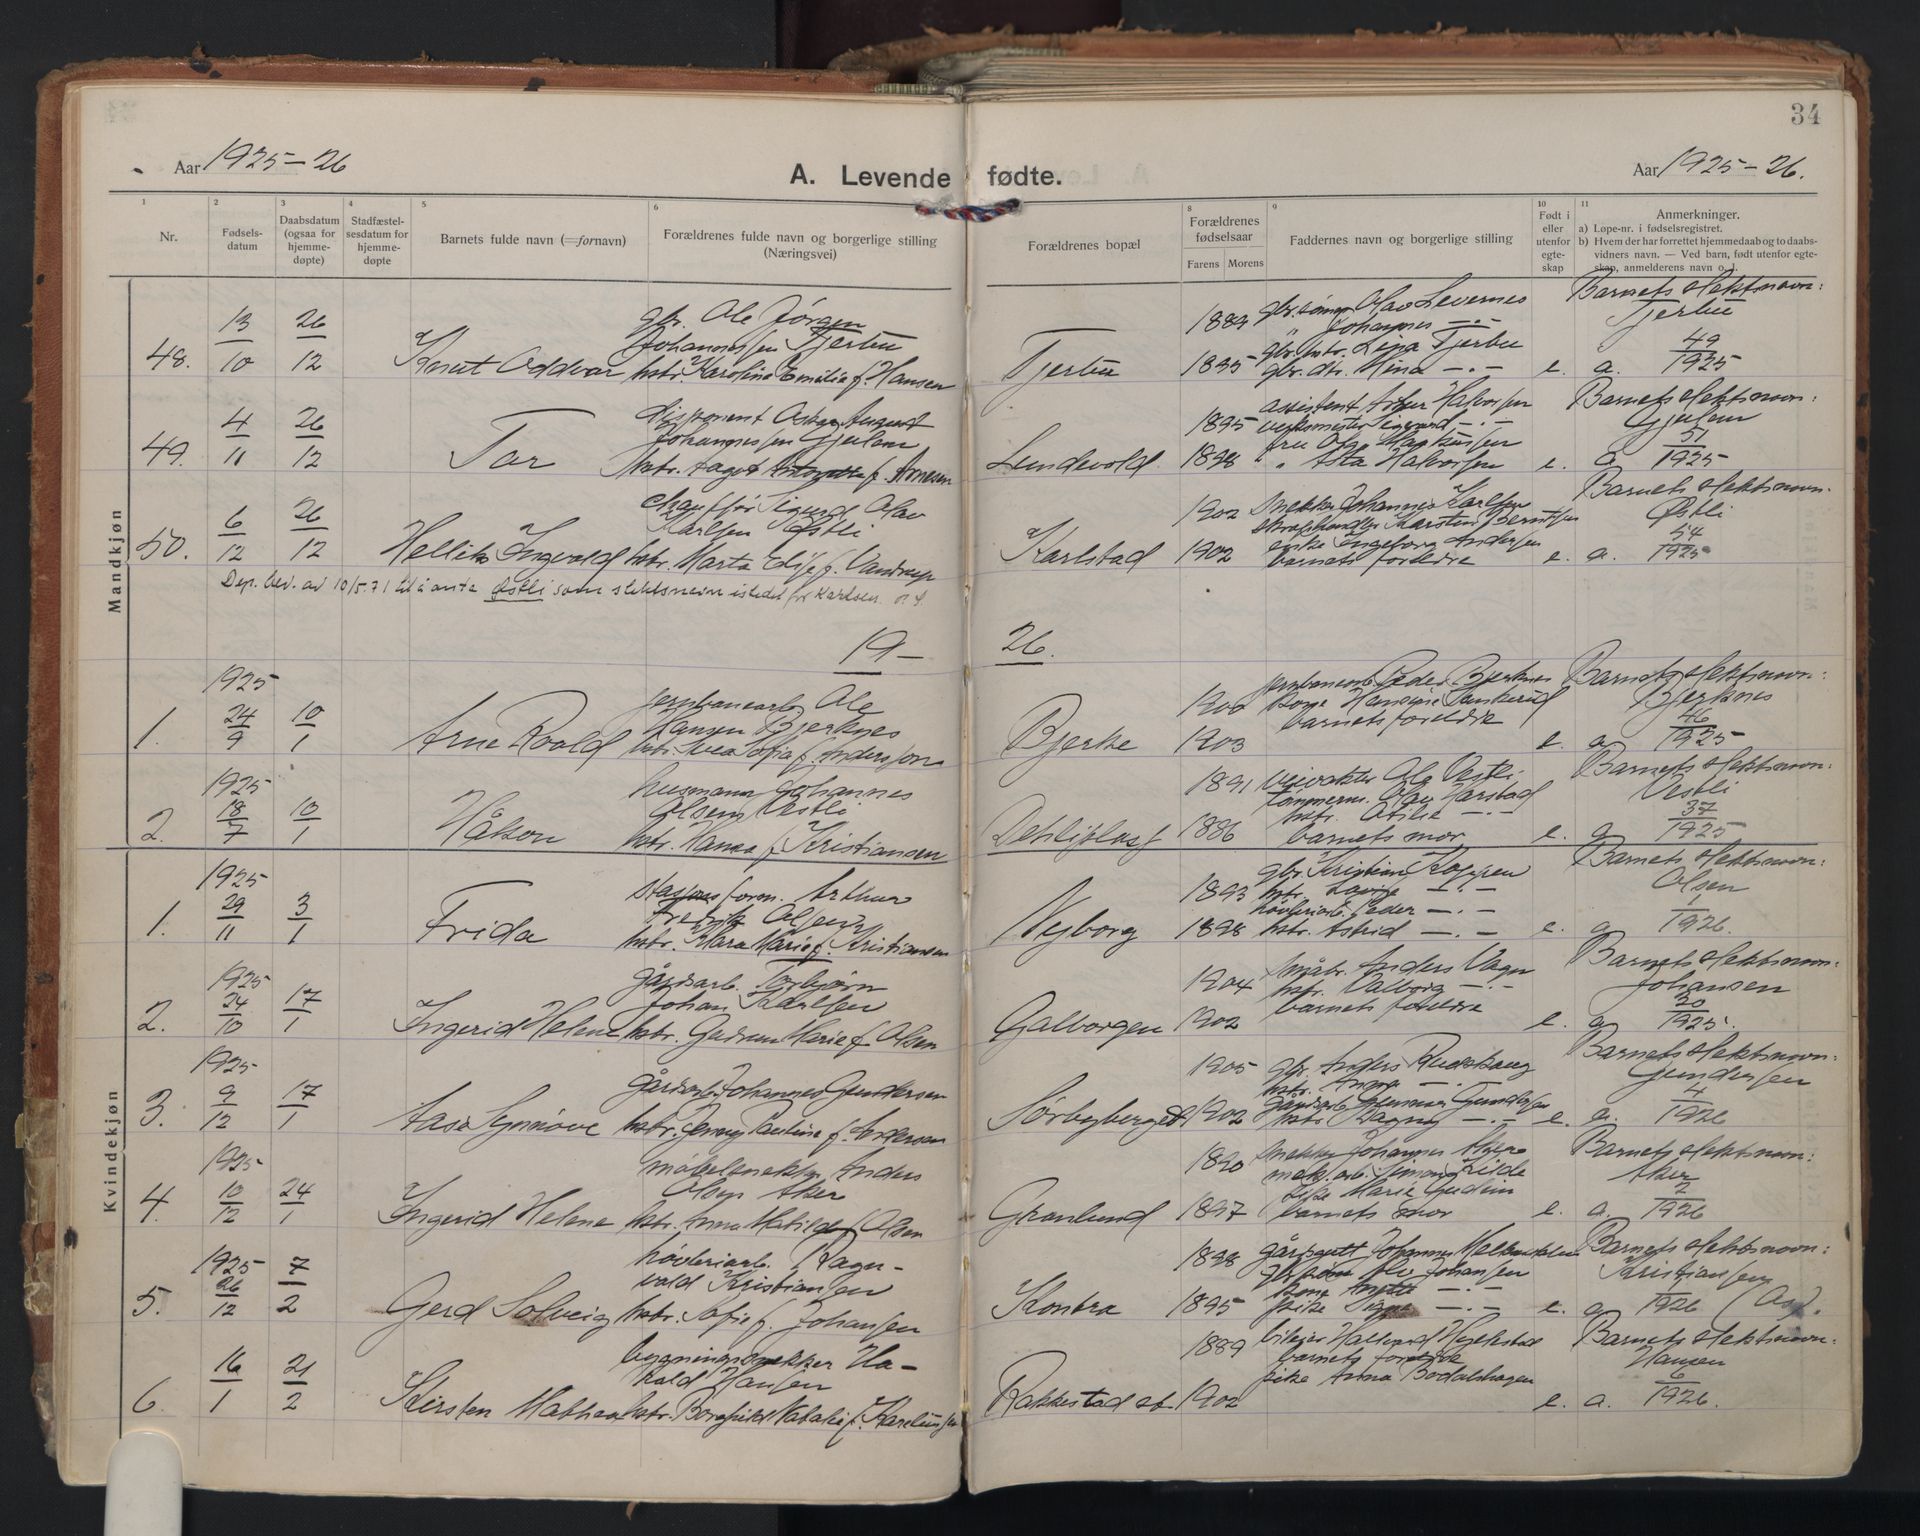 34
Aar 1925-26
A. Levende fødte.
Aar 1925-26.
1 2 3 4 5 6 8 9 10 11
Nr.
Fødsels-
datum
Daabsdatum
(ogsaa for
hjemme-
døpte)
Stadfæstel-
sesdatum for
hjemme-
døpte
Barnets fulde navn (=fornavn)
Forældrenes fulde navn og borgerlige stilling
(Næringsvei)
Forældrenes bopæl
Forældrenes
fødselsaar
Farens Morens
Faddernes navn og borgerlige stilling
Født i
eller
utenfor
egte-
skap
Anmerkninger.
a) Løpe-nr. i fødselsregistret.
b) Hvem der har forrettet hjemmedaab og to daabs-
vidners navn. — Ved barn, født utenfor egte-
skap, anmelderens navn o. l.
Mandkjøn
48. 13/10 26/12 Knut Oddvar
gbr. Ole Jørgen
Johannessen Tjerbu
hstr. Karoline Emilie f. Hansen
Tjerbu 1889 1895
gbr.sønn Olav Levernes
" Johannes -"-
gbr.hstr. Lina Tjerbu
gbr.dtr. Mina -"-
e. a. Barnets slektsnavn:
Tjerbu
49/1925
49. 4/11 26/12 Tor
disponent Oskar August
Johannessen Gjulem
hstr. Aagot f. Arnesen
Lundevold 1895 1898
assistent Halvorsen
Sigurd -"-
fru Olga Markussen
" Asta Halvorsen
e. a. Barnets slektsnavn:
51/1925
50. 6/12 26/12 Hellik Ingvald
chauffør Sigurd Olav
Karlsen Østli
hstr. Marta Elise f. Vandrup
Karlstad 1902 1902
snekker Johannes Karlsen
skraphandler Karsten Berntsen
enke Ingeborg Andersen
barnets foreldre
e. a. Barnets slektsnavn:
Østli
54/1925
Dep. bev. av 10/5.71 til å anta Østli som slektsnavn istedet for Karlsen.
19-26.
1. 1925 24/9 10/1 Arne Roald
jernbanearb. Ole
Hansen Bjerknes
hstr. Svea Sofia f. Andersson
Bjerke 1900 1903
jernbanearb. Peder Bjerknes
barnets foreldre
e. a. Barnets slektsnavn:
Bjerknes
46/1925
2. 1925 18/7 10/1 Håkon
husmann Johannes
Olsen Vestli
hstr. Hanna f. Kristiansen
1891 1886
veivokter Ole Vestli
tømmerm. Olav Harstad
hstr. Otilie -"-
barnets mor
e. a. Barnets slektsnavn:
Vestli
37/1925
Kvindekjøn
1. 1925 29/11 3/1 Frida
stasjonsform. Arthur
Fredrik Olsen
hstr. Klara Marie f. Kristiansen
Nyborg 1893 1898
gbr. Kristian Koppen
hstr. Lovise -"-
høvleriarb. Peder -"-
hstr. Astrid -"-
e. a. Barnets slektsnavn:
Olsen
1/1926.
2. 1925 24/10 17/1 Ingerid Helene
gårdsarb. Torbjørn
Johan Karlsen
hstr. Gudrun Marie f. Olsen
Galborgen 1904 1902
småbr. Anders Vagn
hstr. Valborg -"-
barnets foreldre
e. a. Barnets slektsnavn:
Johansen
30/1925.
3. 1925 9/12 17/1 Aase Synnöve
gårdsarb. Johannes Gundersen
hstr. Jenny Pauline f. Andersen
Sørbyberget 1905 1902
gbr. Anders Rudskaug
hstr. Anna -"-
gårdsarb. Gundersen
hstr. Dagny -"-
e. a. Barnets slektsnavn:
Gundersen
4/1926
4. 1925 10/12 24/1 Ingerid Helene
møbelsnekker Anders
Olsen Aker
hstr. Anna Matilde f. Olsen
Granlund 1890 1897
snekker Johannes
mek.arb.
pike Marie Gudim
barnets mor
e. a. Barnets slektsnavn:
Aker
2/1926
5. 1925 26/12 7/2 Gerd Solveig
høvleriarb. Ragn-
vald Kristiansen
hstr. Sofie f. Johansen
Kontra 1898 1895
Johannes
Johansen
pike Signe -"-
e. a. Barnets slektsnavn:
Kristiansen
1926 (As).
6. 16/1 21/2 Kirsten Mathea
bygningssnekker Ha-
rald Hansen
hstr. Borghild Natalie f. Karlsen
Rakkestad st 1889 1902
bileier Halvard
barnets foreldre
pike Anna Bodalshagen
e. a. Barnets slektsnavn:
Hansen
6/1926.